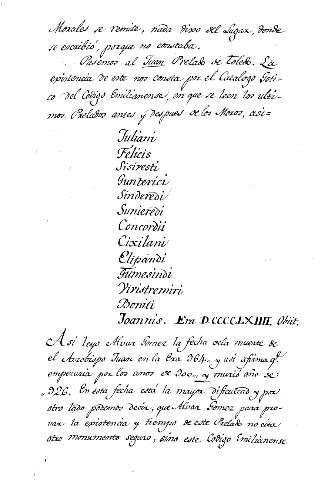 Morales se remite, nada dixo del Lugar, donde
se escribió, porque no constaba.
Pasemos al Juan Prelado de Toledo. La
existencia de este nos consta por el Catalogo Goti-
co del Codigo Emilianense, en que se leen los ulti-
mos Prelados antes y despues de los Moros, asi=
Juliani
Felicis
Sisiresti
Gunterici
Sinderedi
Sunieredi
Concordii
Cixilani
Elipandi
Gumesindi
Vvistremiri
Boniti
Joannis. Era D.CCCCLXIIII, Obiit.
Asi leyo Alvar Gomez la fecha de la muerte de
el Arzobispo Juan en la Era 964,, y asi afirma q.e
empezaria por los anos de 900,, y murió año de
,,926. En esta fecha está la mayor dificultad y por
otro lado podemos decir, que Alvar Gomez para pro-
var la existencia y tiempo de este Prelado no cita
otro monumento seguro, sino este Codigo Emilianense